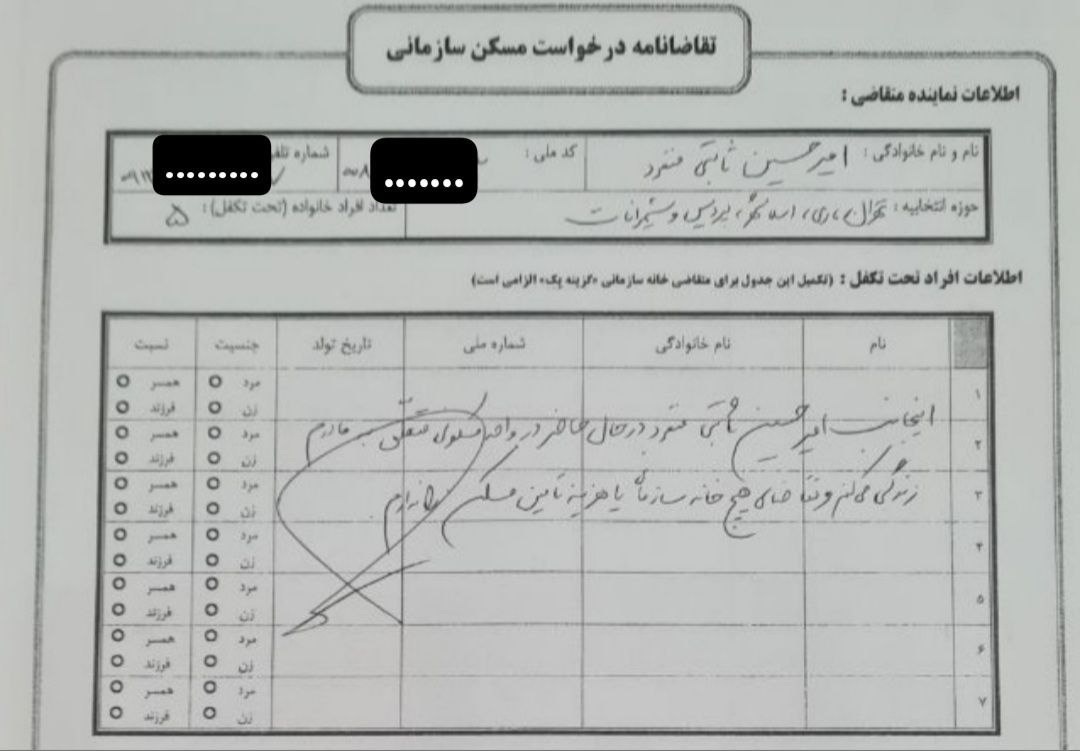 تقاضانامه درخواست مسکن سازمانی
اطلاعات نماینده متقاضی :
نام و نام خانوادگی : امیرحسین ثابتی منفرد کد ملی : ۰۰۸ شماره تلفن
حوزه انتخابیه : تهران، ری، اسلامشهر، پردیس و شمیرانات تعداد افراد خانواده (تحت تکفل) : ۵
اطلاعات افراد تحت تکفل : (تکمیل این جدول برای متقاضی خانه سازمانی «گزینه یک» الزامی است)
نام نام خانوادگی شماره ملی تاریخ تولد جنسیت نسبت
۱ مرد همسر
زن فرزند
اینجانب امیرحسین ثابتی منفرد در حال حاضر در واحد مسکونی متعلق به مادرم
۲ مرد همسر
زن فرزند
زندگی می‌کنم و تقاضای هیچ خانه سازمانی یا هزینه تامین مسکن را ندارم
۳ مرد همسر
زن فرزند
۴ مرد همسر
زن فرزند
۵ مرد همسر
زن فرزند
۶ مرد همسر
زن فرزند
۷ مرد همسر
زن فرزند